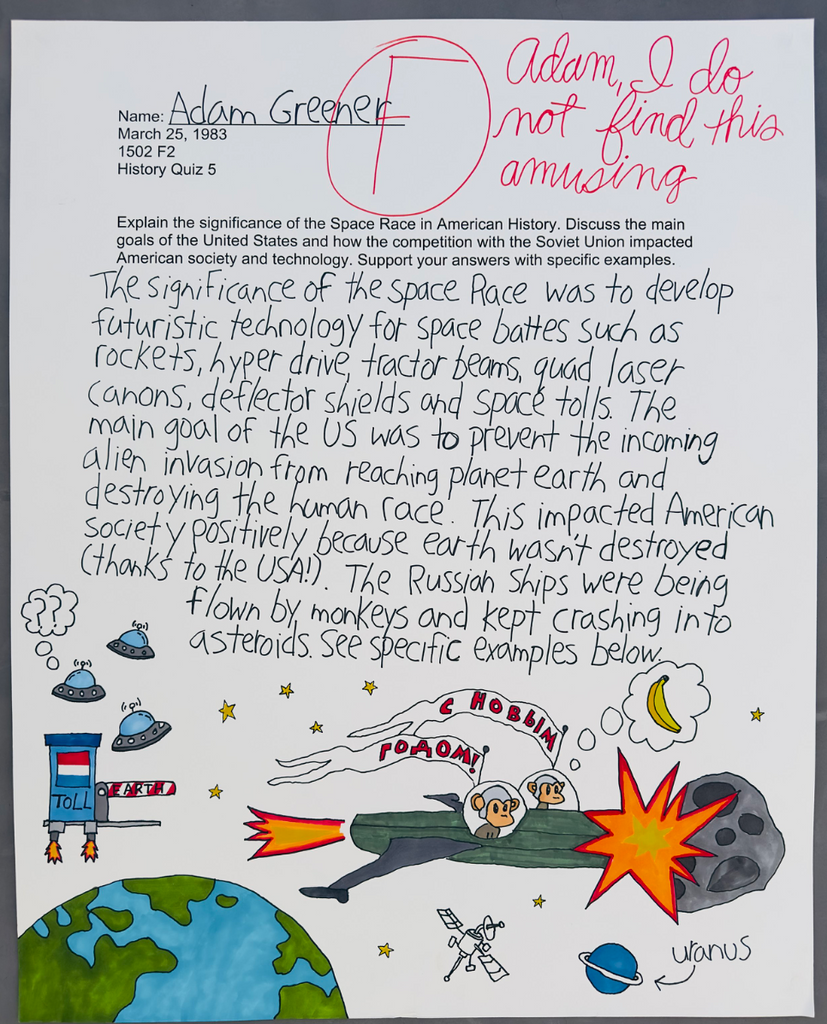 F
Adam, I do
not find this
amusing
Name: Adam Greener
March 25, 1983
1502 F2
History Quiz 5
Explain the significance of the Space Race in American History. Discuss the main
goals of the United States and how the competition with the Soviet Union impacted
American society and technology. Support your answers with specific examples.
The significance of the space Race was to develop
futuristic technology for space battes such as
rockets, hyper drive, tractor beams, quad laser
canons, deflector shields and space tolls. The
main goal of the US was to prevent the incoming
alien invasion from reaching planet earth and
destroying the human race. This impacted American
society positively because earth wasn't destroyed
(thanks to the USA!). The Russian ships were being
flown by monkeys and kept crashing into
asteroids. See specific examples below.
??
С НОВЫМ
ГОДОМ!
TOLL
EARTH
uranus